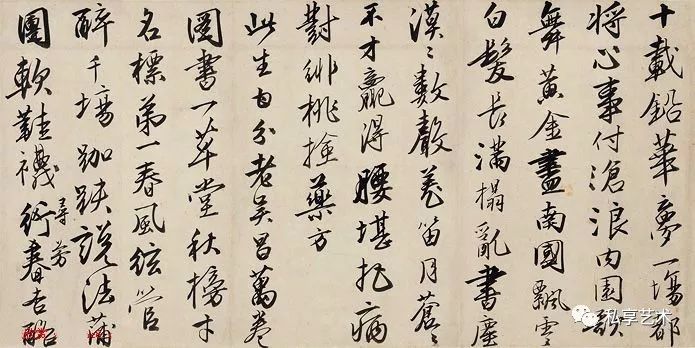 十載鉛華夢一場都
將心事付滄浪內園歌
舞黃金盡南國飄零
白髮長滿榻亂書塵
漠〻數聲羌笛月蒼〻
不才贏得腰堪把病
對緋桃撿藥方
此生自分老吳昌萬卷
圖書一草堂秋榜才
名標第一春風絃管
醉千場跏趺說法蒲
團軟鞋襪行春杏酪
尋芳
私享艺术